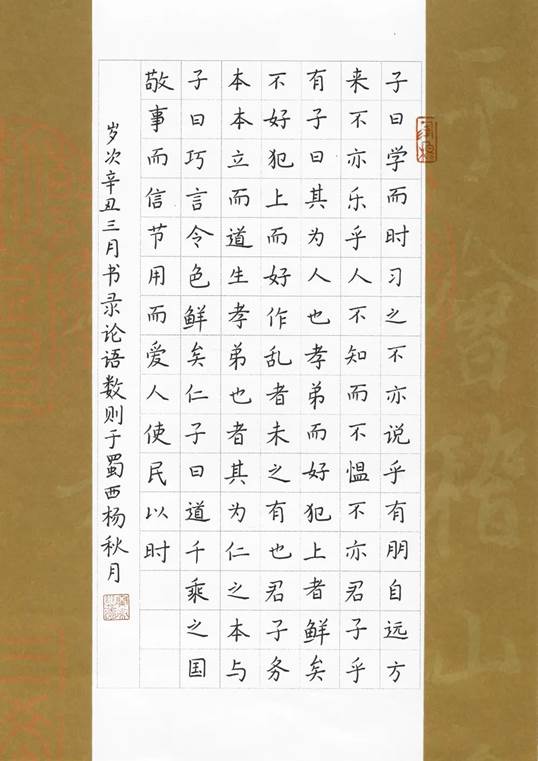 子曰学而时习之不亦说乎有朋自远方
来不亦乐乎人不知而不愠不亦君子乎
有子曰其为人也孝弟而好犯上者鲜矣
不好犯上而好作乱者未之有也君子务
本本立而道生孝弟也者其为仁之本与
子曰巧言令色鲜矣仁子曰道千乘之国
敬事而信节用而爱人使民以时
岁次辛丑三月书录论语数则于蜀西杨秋月
會稽山